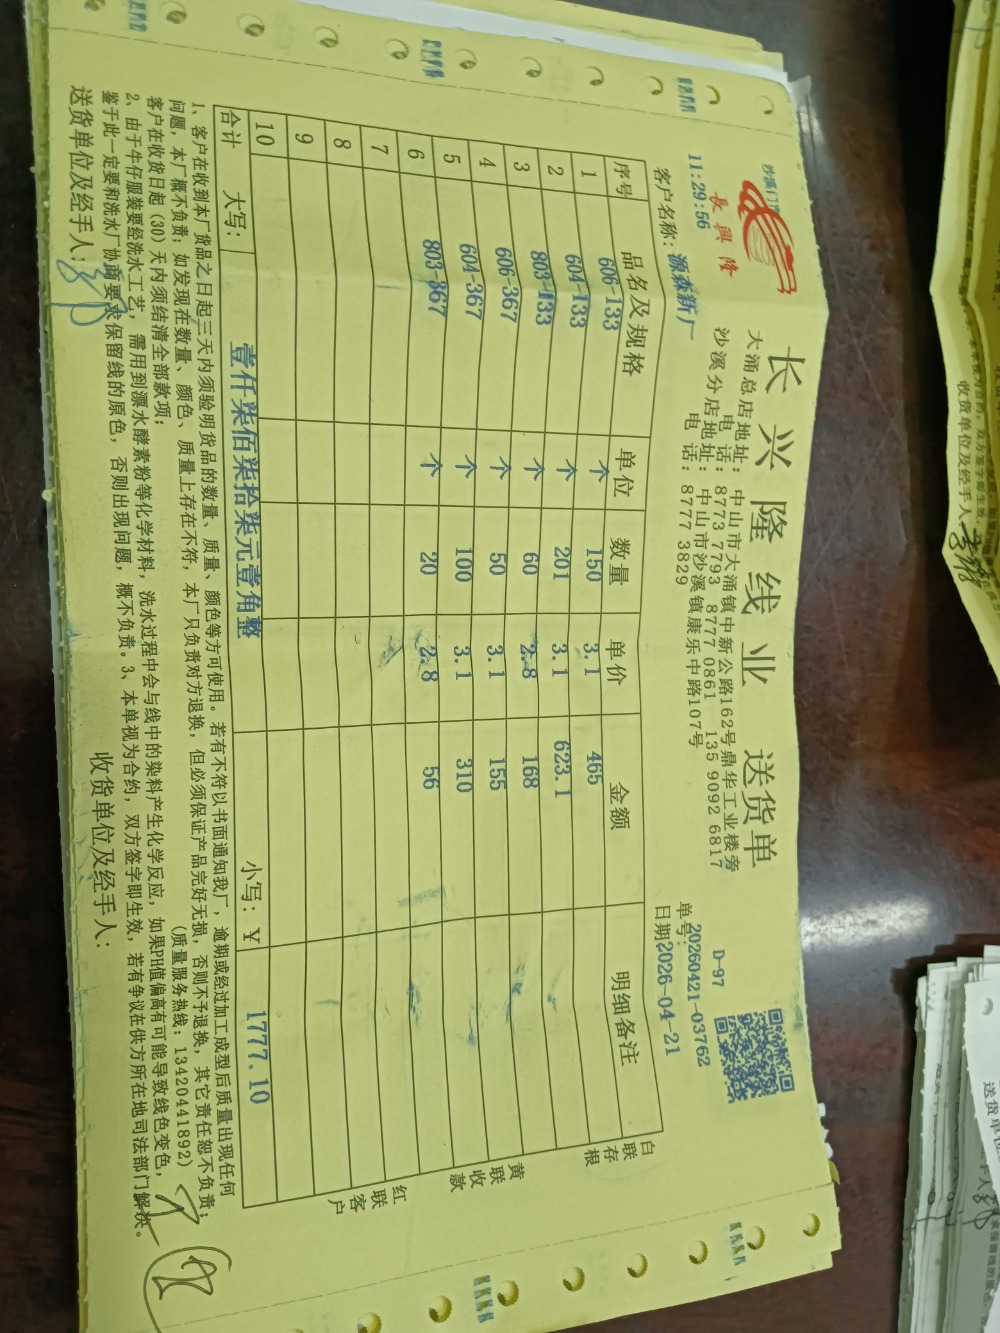 沙溪门市
長興隆
长兴隆线业 送货单
大涌总店地址：中山市大涌镇中新公路162号鼎华工业楼旁
电 话：8773 7793 8777 0861 135 9092 6817
沙溪分店地址：中山市沙溪镇康乐中路107号
电 话：8777 3829
D-97
11:29:56
单号：20260421-03762
客户名称：源森新厂
日期2026-04-21
序号 品名及规格 单位 数量 单价 金额 明细备注
1 606-133 个 150 3.1 465
2 604-133 个 201 3.1 623.1
3 803-133 个 60 2.8 168
4 606-367 个 50 3.1 155
5 604-367 个 100 3.1 310
6 803-367 个 20 2.8 56
7
8
9
10
合计 大写：壹仟柒佰柒拾柒元壹角整 小写：¥ 1777.10
白联存根
黄联收款
红联客户
1、客户在收到本厂货品之日起三天内须验明货品的数量、质量、颜色等方可使用。若有不符以书面通知我厂，逾期或经过加工成型后质量出现任何
问题，本厂概不负责；如发现在数量、颜色、质量上存在不符，本厂只负责对方退换，但必须保证产品完好无损，否则不予退换，其它责任恕不负责；
客户在收货日起(30)天内须结清全部款项； (质量服务热线：13420441892)
2、由于牛仔服装要经洗水工艺，需用到漂水酵素粉等化学材料，洗水过程中会与线中的染料产生化学反应，如果PH值偏高有可能导致线色变色，
鉴于此一定要和洗水厂协商要求保留线的原色，否则出现问题，概不负责。3、本单视为合约，双方签字即生效，若有争议在供方所在地司法部门解决。
送货单位及经手人： 收货单位及经手人：
收货单位及经手人